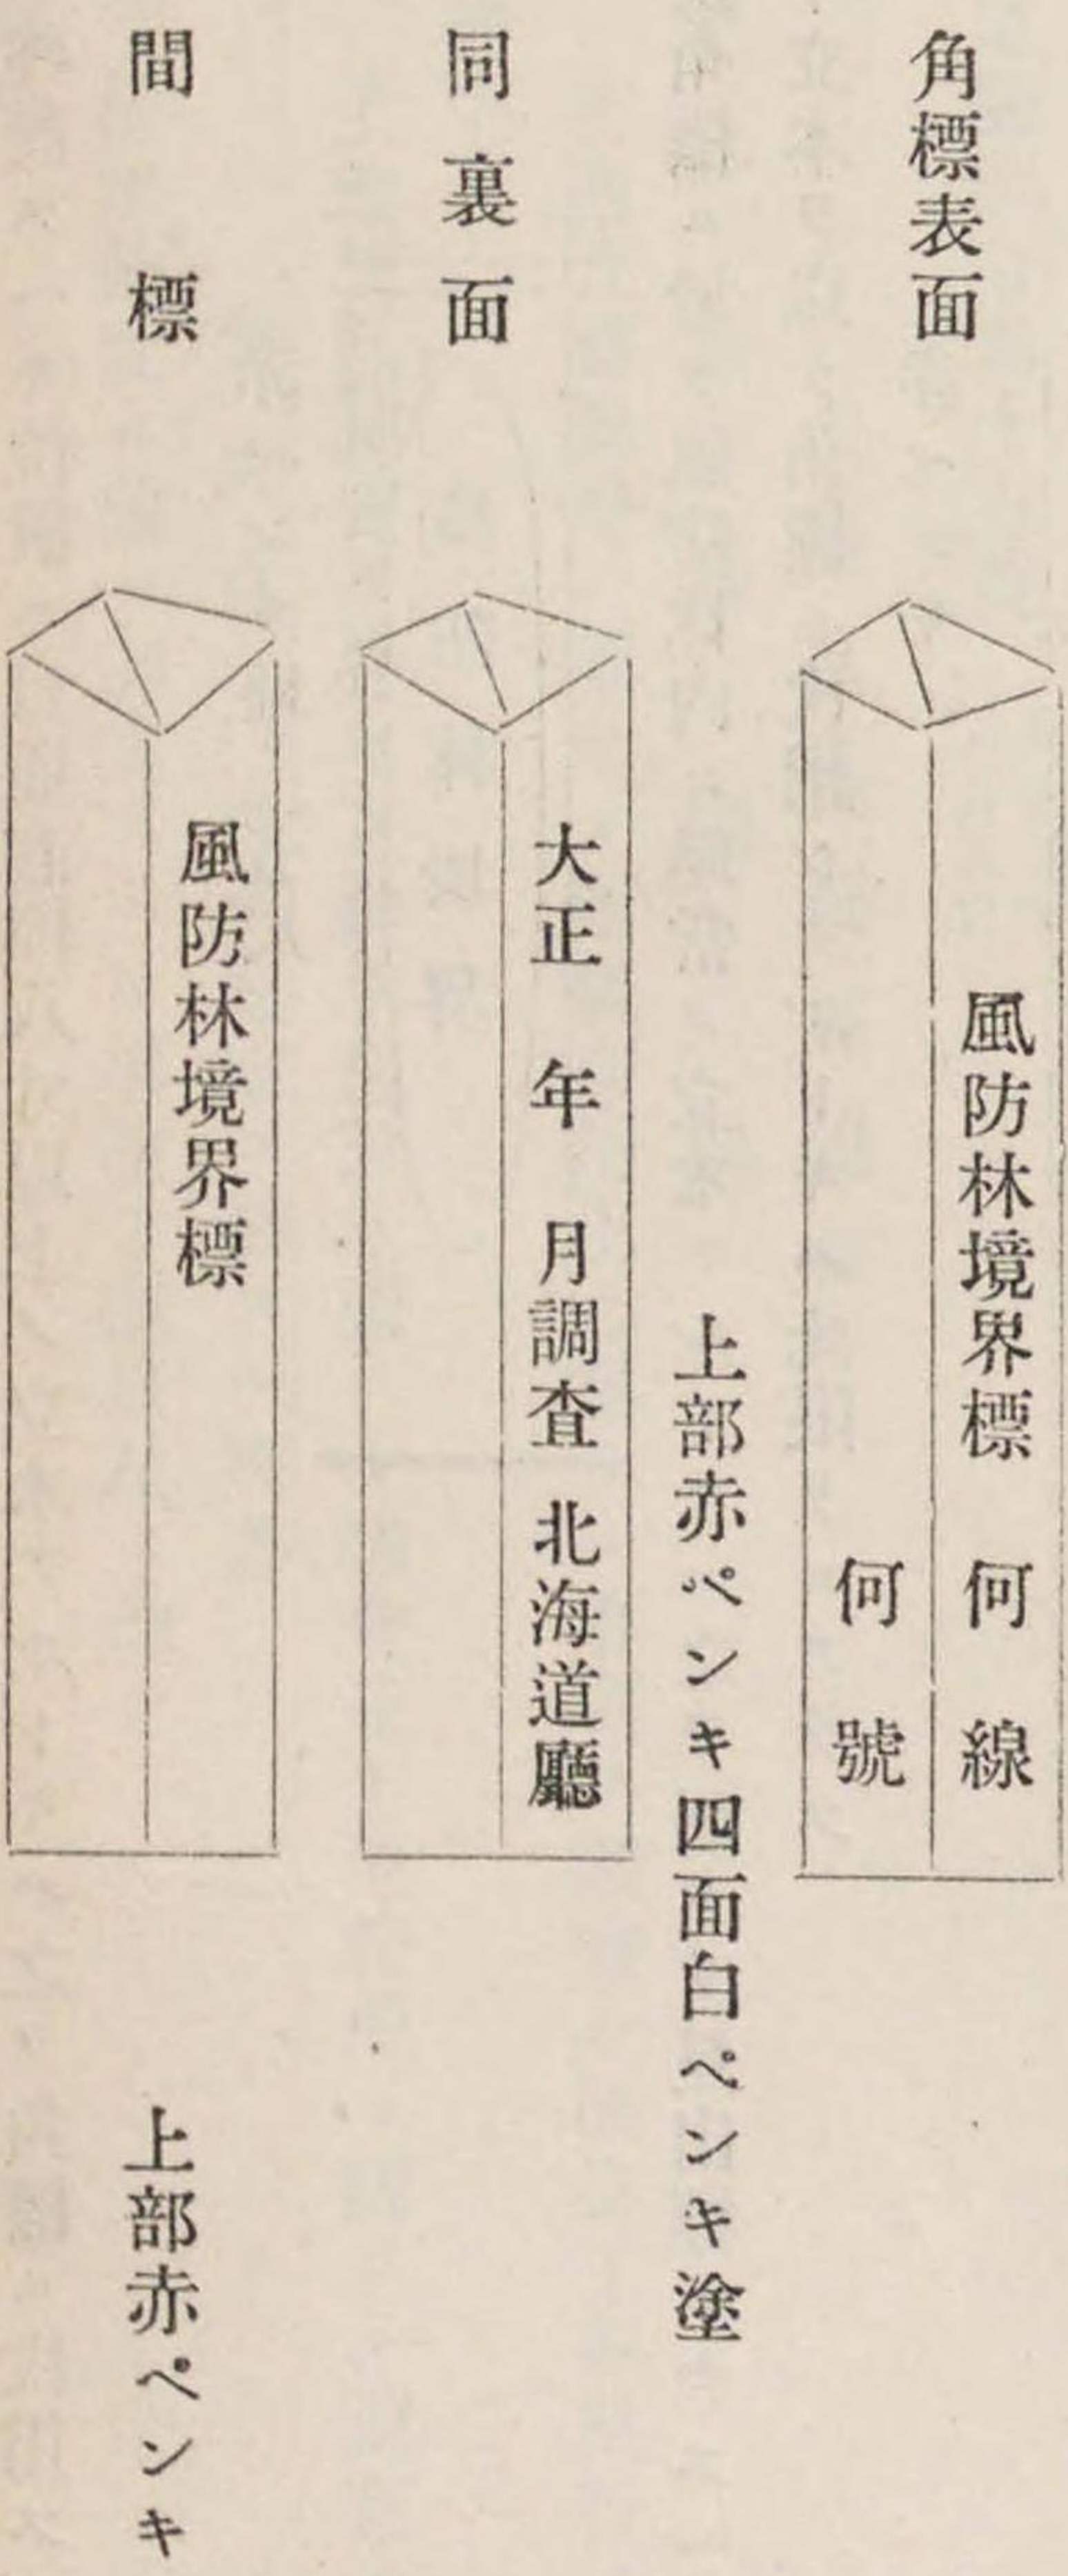 角標表面
風防林境界標 何線
何號
上部赤ペンキ四面白ペンキ塗
同裏面
大正 年 月調査 北海道廳
間標
風防林境界標
上部赤ペンキ